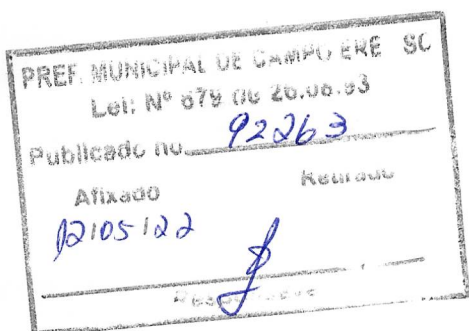 PREF. MUNICIPAL DE CAMPO ERE SC
Lei: Nº 679 de 26.08.93
Publicado no 92263
Afixado Retirado
12/05/22
Responsável